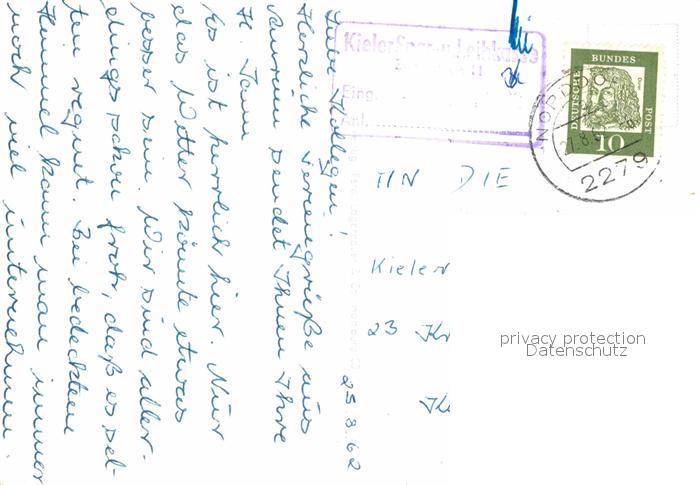 25.8.62
Liebe Kollegen!
Herzliche Feriengrüße aus
sendet Ihnen Ihre
H. Jann
Es ist herrlich hier. Nur
das Wetter könnte etwas
besser sein. Wir sind aller-
dings schon froh, daß es sel-
ten regnet. Bei bedecktem
Himmel kann man immer
noch viel unternehmen.
Kieler Spar- u. Leihkasse
Eing.
Ant.
DEUTSCHE
BUNDES
POST
10
NORDDO
2279
AN DIE
Kieler
23 K
privacy protection
Datenschutz